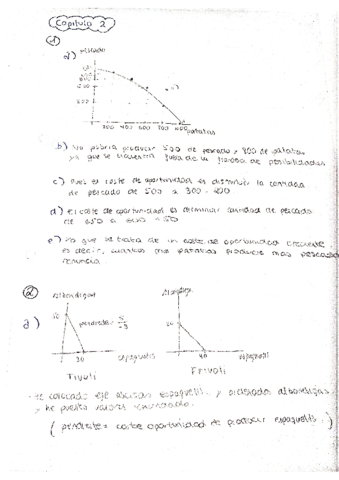 Capítulo 2
①
a) pescado
200 400 600 700 800 patatas
b) No podría producir 500 de pescado y 800 de patatas
ya que se encuentra fuera de la frontera de posibilidades
c) Pues el coste de oportunidad es disminuir la cantidad
de pescado de 500 a 300 = 200
d) El coste de oportunidad es disminuir cantidad de pescado
de 650 a 600 = 50
e) Ya que se trata de un coste de oportunidad creciente
es decir, cuantas más patatas produces más pescado
renuncia
②
a) albóndigas
50
pendiente =
30 espaguetis
Tívoli
30
40 espaguetis
Frivoli
he colocado eje abscisas espaguetis y ordenadas albóndigas
y he puesto valores
(pendiente = coste oportunidad de producir espaguetis)